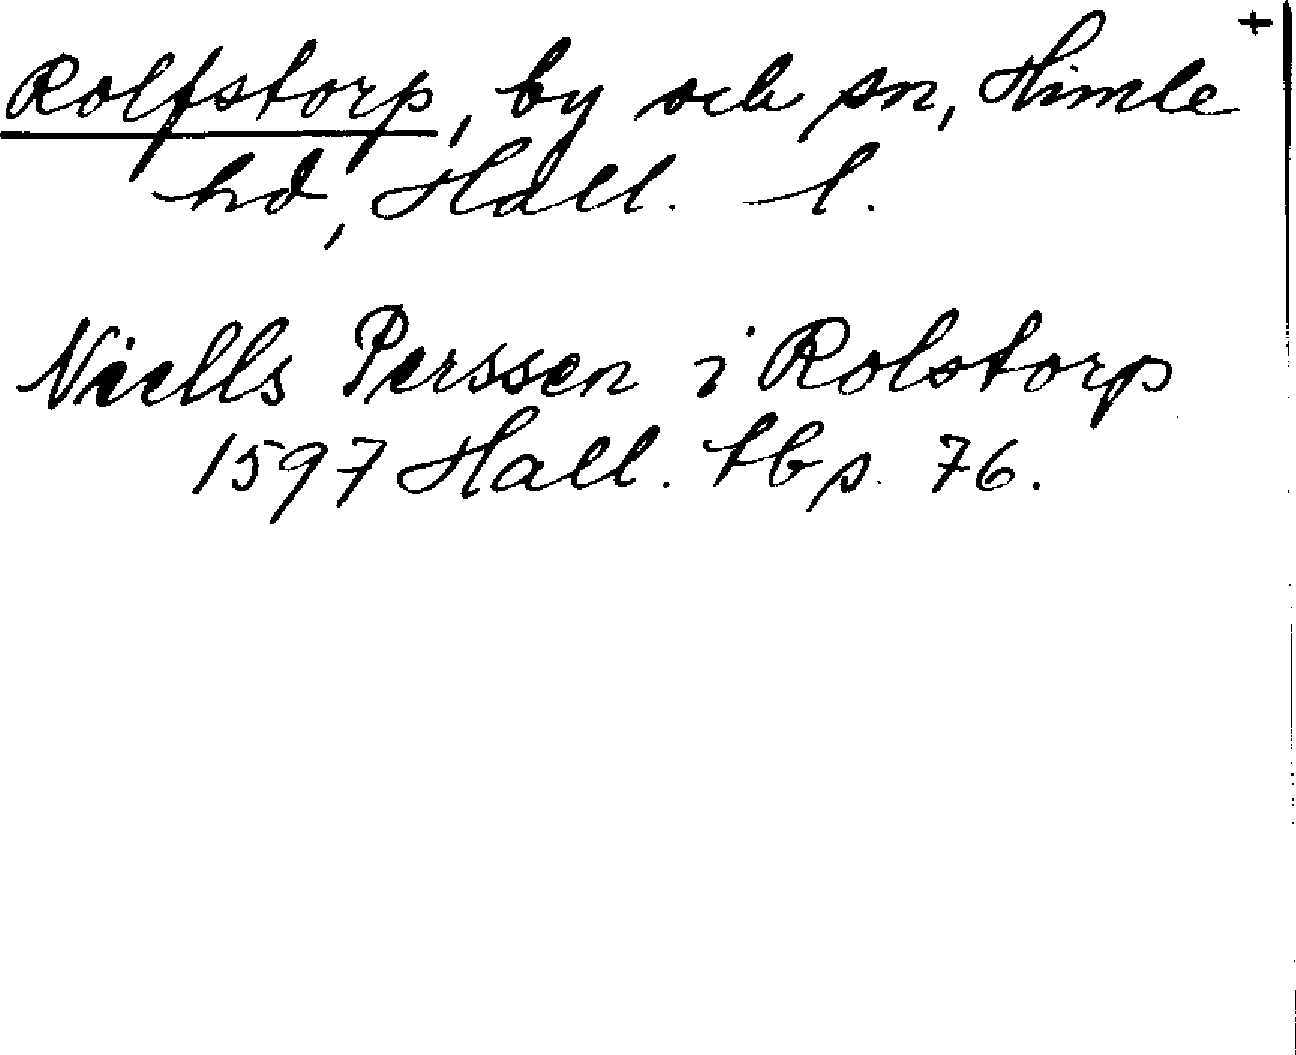 Rolfstorp, by och sn, Himle +
hd, Hall. l.
Niells Perssen i Rolstorp
1597 Hall. tb s. 76.